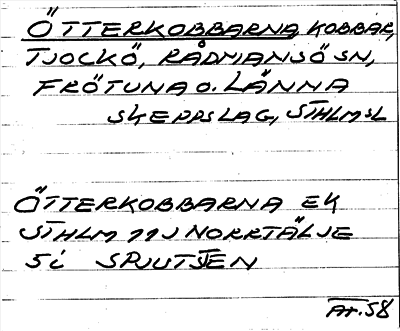 ÖTTERKOBBARNA, KOBBAR,
TJOCKÖ, RÅDMANSÖ SN,
FRÖTUNA O. LÄNNA
SKEPPSLAG, STHLMSL
ÖTTERKOBBARNA EK
STHLM 11J NORRTÄLJE
5i SPJUTSTEN
AT. 58